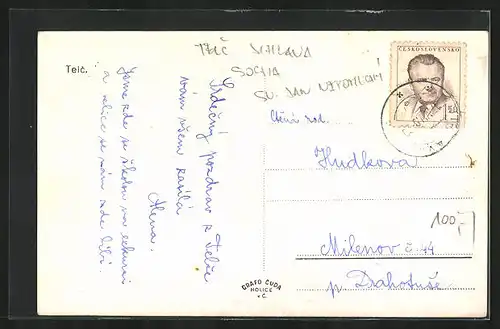 Telč.
TELČ JIHLAVA
SOCHA
SV. JAN NEPOMUCKÝ
ČESKOSLOVENSKO
Srdečný pozdrav z Telče
vám všem zasílá
Alena.
Jsme zde se školou na exkursi
a velice se nám zde líbí
Ctěná rod.
Hudkova
100,-
Milenov č 44
p. Drahotuše
GRAFO ČUDA
HOLICE
v Č.